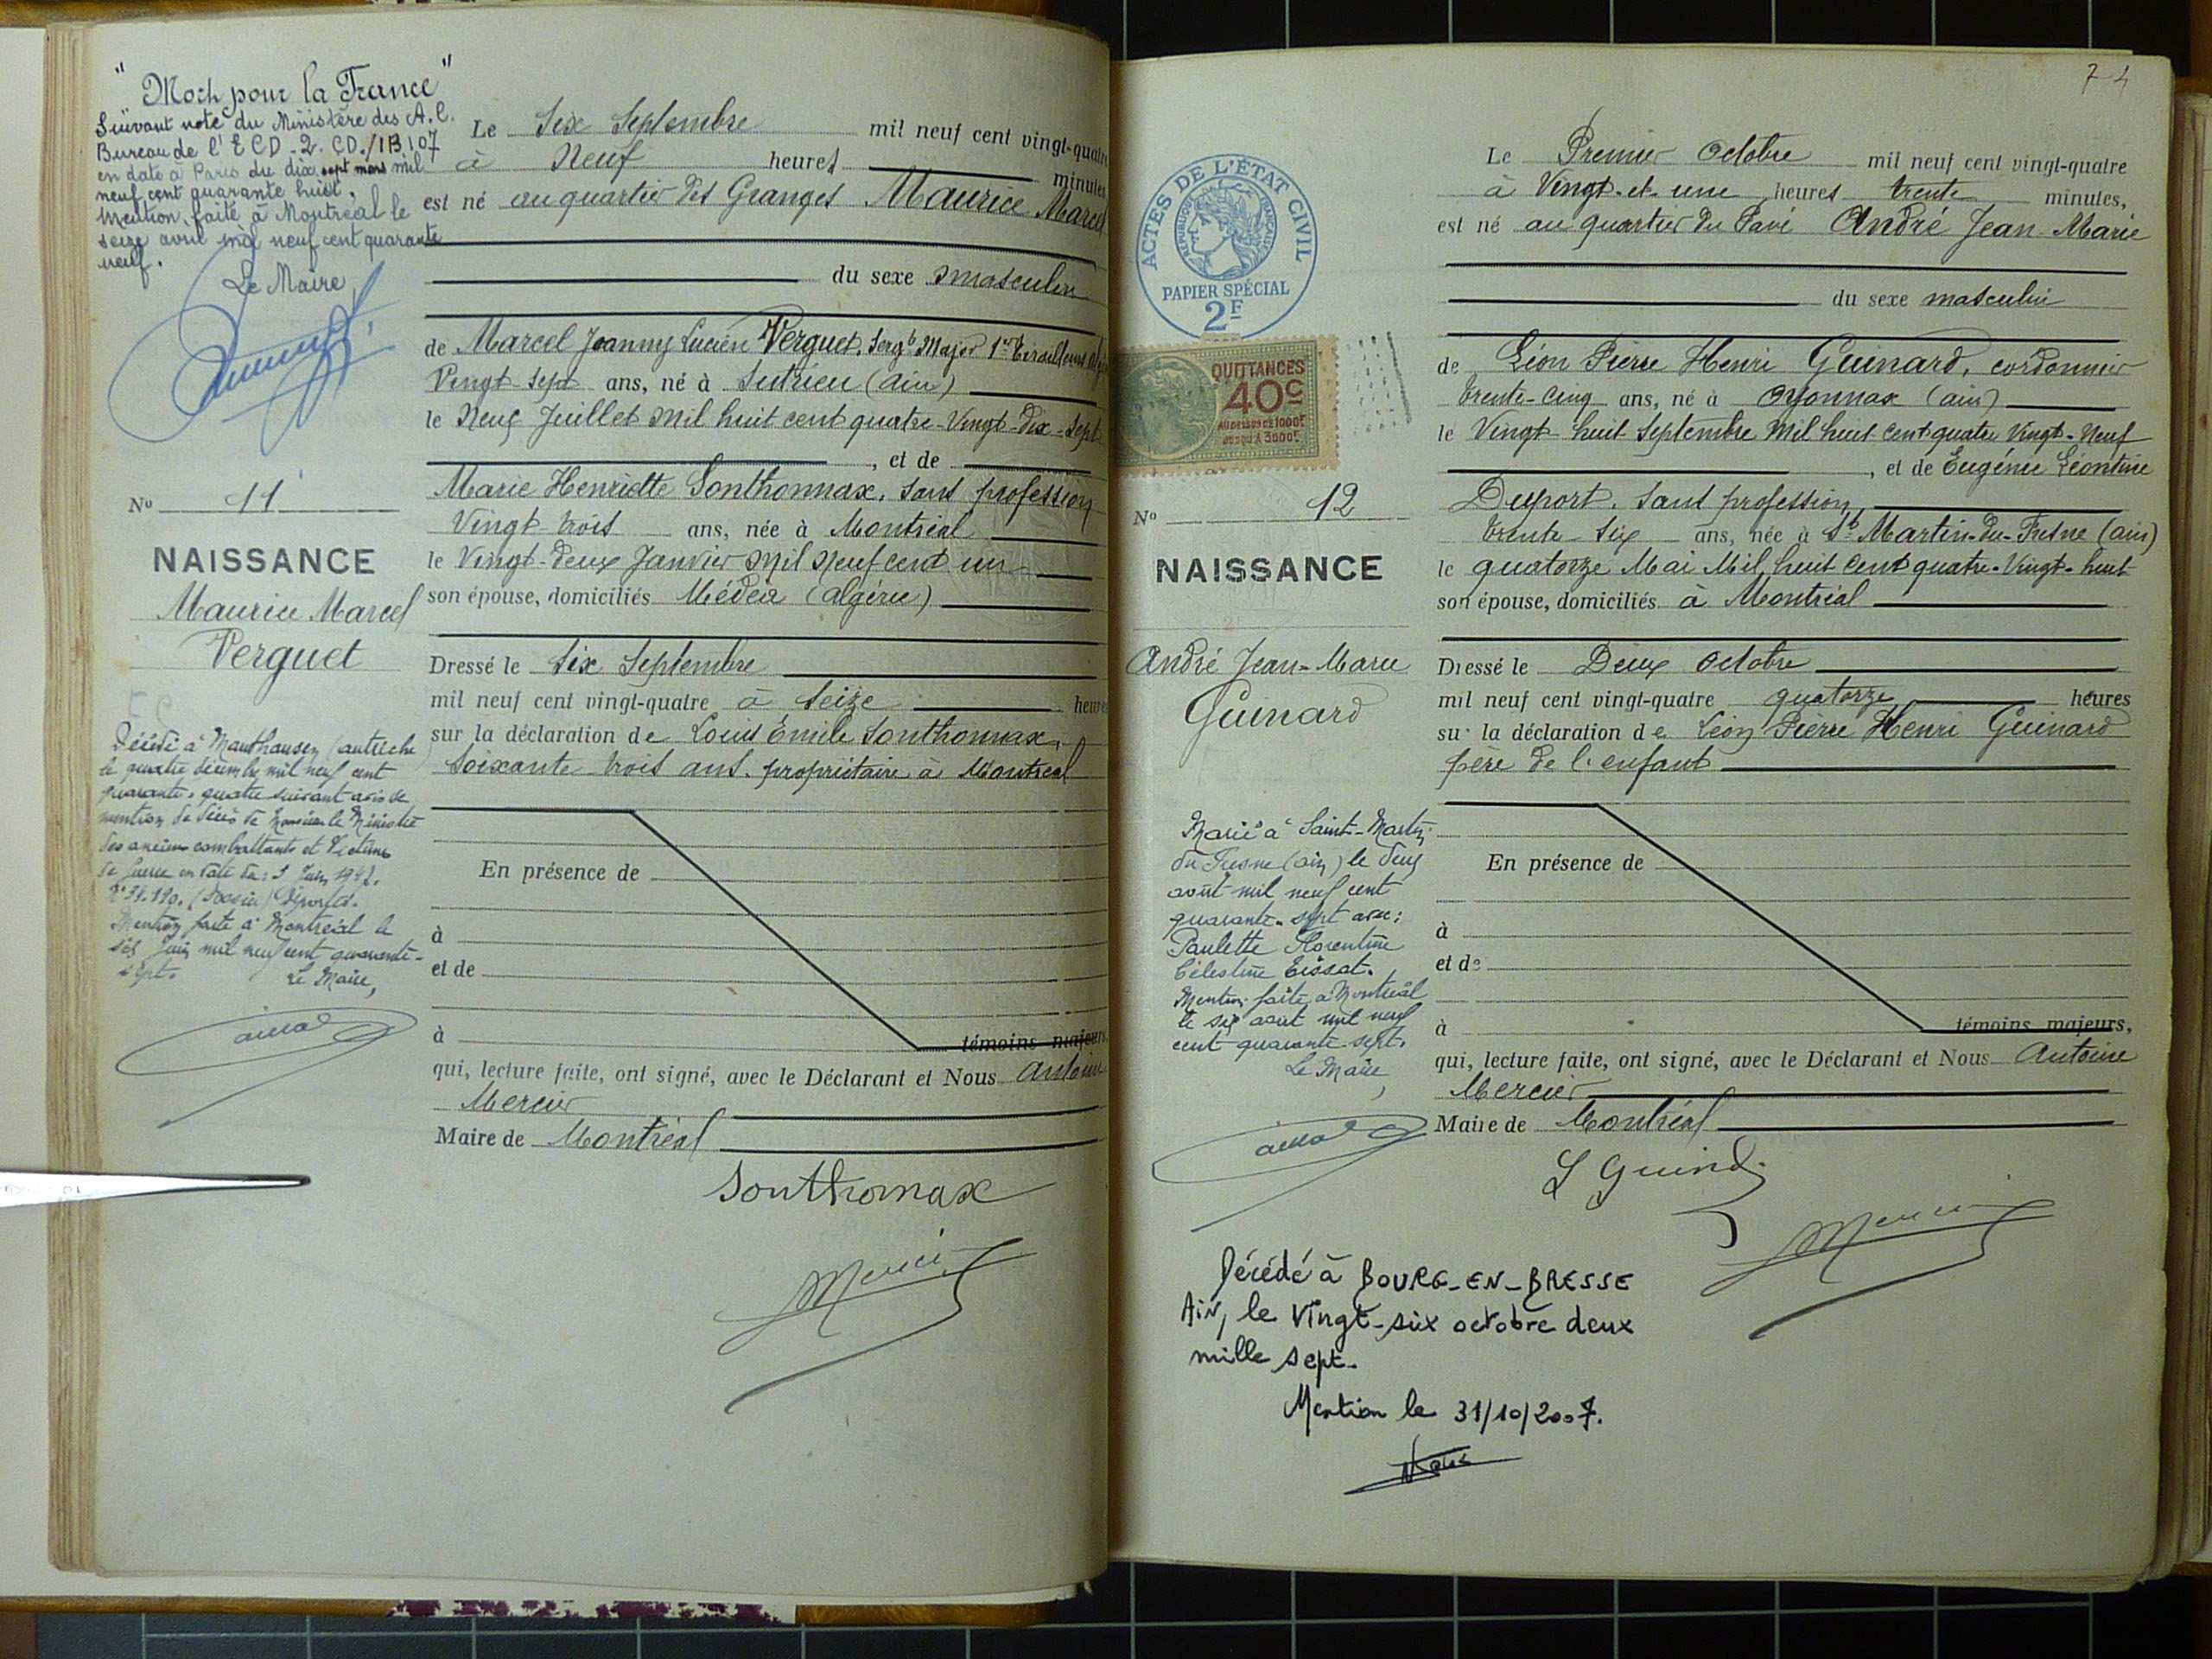 "Mort pour la France"
Suivant note du Ministère des A.C.
Bureau de l'ECD-2.CD./1B107
en date à Paris du dix sept mars mil
neuf cent quarante huit.
Mention faite à Montréal le
seize avril mil neuf cent quarante
neuf.
Le Maire
Le Six Septembre mil neuf cent vingt-quatre
à Neuf heures minutes
est né au quartier des Granges Maurice Marcel
du sexe masculin
de Marcel Joanny Lucien Verguet, Sergt Major 1er Tirailleurs
Vingt sept ans, né à Sutrieu (Ain)
le Neuf Juillet Mil huit cent quatre-Vingt-Dix-Sept
, et de
Marie Henriette Sonthonnax, sans profession
Vingt trois ans, née à Montréal
le Vingt-Deux Janvier Mil Neuf cent un
son épouse, domiciliés Médéa (Algérie)
No 11
NAISSANCE
Maurice Marcel
Verguet
Dressé le Six Septembre
mil neuf cent vingt-quatre à Seize heures
sur la déclaration de Louis Émile Sonthonnax,
Soixante trois ans. propriétaire à Montréal
Décédé à Mauthausen (autriche
le quatre décembre mil neuf cent
quarante-quatre suivant avis de
mention de décès de Monsieur le Ministre
des anciens combattants et Victimes
de Guerre en date du: Juin 1947.
(Dossier) Déportés.
Mention faite à Montréal le
six Juin mil neuf cent quarante-
sept. Le Maire,
En présence de
à
et de
à témoins majeurs,
qui, lecture faite, ont signé, avec le Déclarant et Nous Antoine
Mercier
Maire de Montréal
Sonthonnax
Mercier
74
ACTES DE L'ÉTAT CIVIL
RÉPUBLIQUE FRANÇAISE
PAPIER SPÉCIAL
2F
QUITTANCES
40c
AU DESSUS DE 1000F
JUSQU'À 3000F
Le Premier Octobre mil neuf cent vingt-quatre
à Vingt-et-une heures trente minutes,
est né au quartier du Pavé André Jean-Marie
du sexe masculin
de Léon Pierre Henri Guinard, cordonnier
trente-cinq ans, né à Oyonnax (ain)
le Vingt huit Septembre Mil huit cent quatre Vingt-Neuf
, et de Eugénie Léontine
Duport. Sans profession
trente six ans, née à St Martin-du-Fresne (ain)
le quatorze Mai Mil huit cent quatre-Vingt-huit
son épouse, domiciliés à Montréal
No 12
NAISSANCE
André Jean-Marie
Guinard
Dressé le Deux Octobre
mil neuf cent vingt-quatre quatorze heures
sur la déclaration de Léon Pierre Henri Guinard
père de l'enfant
Marié à Saint-Martin
du Fresne (ain) le deux
août mil neuf cent
quarante-sept avec:
Paulette Florentine
Célestine Tissot.
Mention faite à Montréal
le six août mil neuf
cent quarante-sept.
Le Maire
En présence de
à
et de
à témoins majeurs,
qui, lecture faite, ont signé, avec le Déclarant et Nous Antoine
Mercier
Maire de Montréal
L Guinard
Mercier
Décédé à BOURG-EN-BRESSE
Ain, le vingt-six octobre deux
mille sept.
Mention le 31/10/2007.